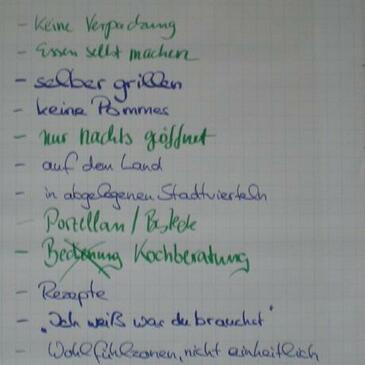 - Keine Verpackung
- Essen selbst machen
- selber grillen
- keine Pommes
- nur nachts göffnet
- auf dem Land
- in abgelegenen Stadtvierteln
- Porzellan / Bstecke
- Bedienung Kochberatung
- Rezepte
- "Ich weiß was du brauchst"
- Wohlfühlzonen, nicht einheitlich